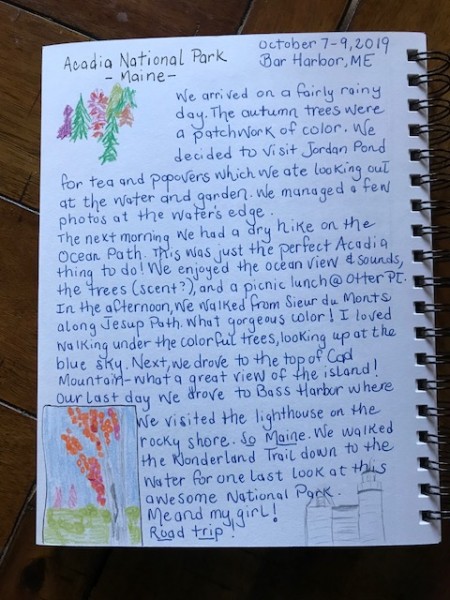 October 7-9, 2019
Acadia National Park
Bar Harbor, ME
- Maine -
We arrived on a fairly rainy
day. The autumn trees were
a patchwork of color. We
decided to visit Jordan Pond
for tea and popovers which we ate looking out
at the water and garden. We managed a few
photos at the water's edge.
The next morning we had a dry hike on the
Ocean Path. This was just the perfect Acadia
thing to do! We enjoyed the ocean view & sounds,
the trees (scent?), and a picnic lunch @ Otter PT.
In the afternoon, we walked from Sieur du Monts
along Jesup Path. What gorgeous color! I loved
walking under the colorful trees, looking up at the
blue sky. Next, we drove to the top of Cad
Mountain - what a great view of the island!
Our last day we drove to Bass Harbor where
we visited the lighthouse on the
rocky shore. So Maine. We walked
the Wonderland Trail down to the
water for one last look at this
awesome National Park.
Me and my girl!
Road trip!